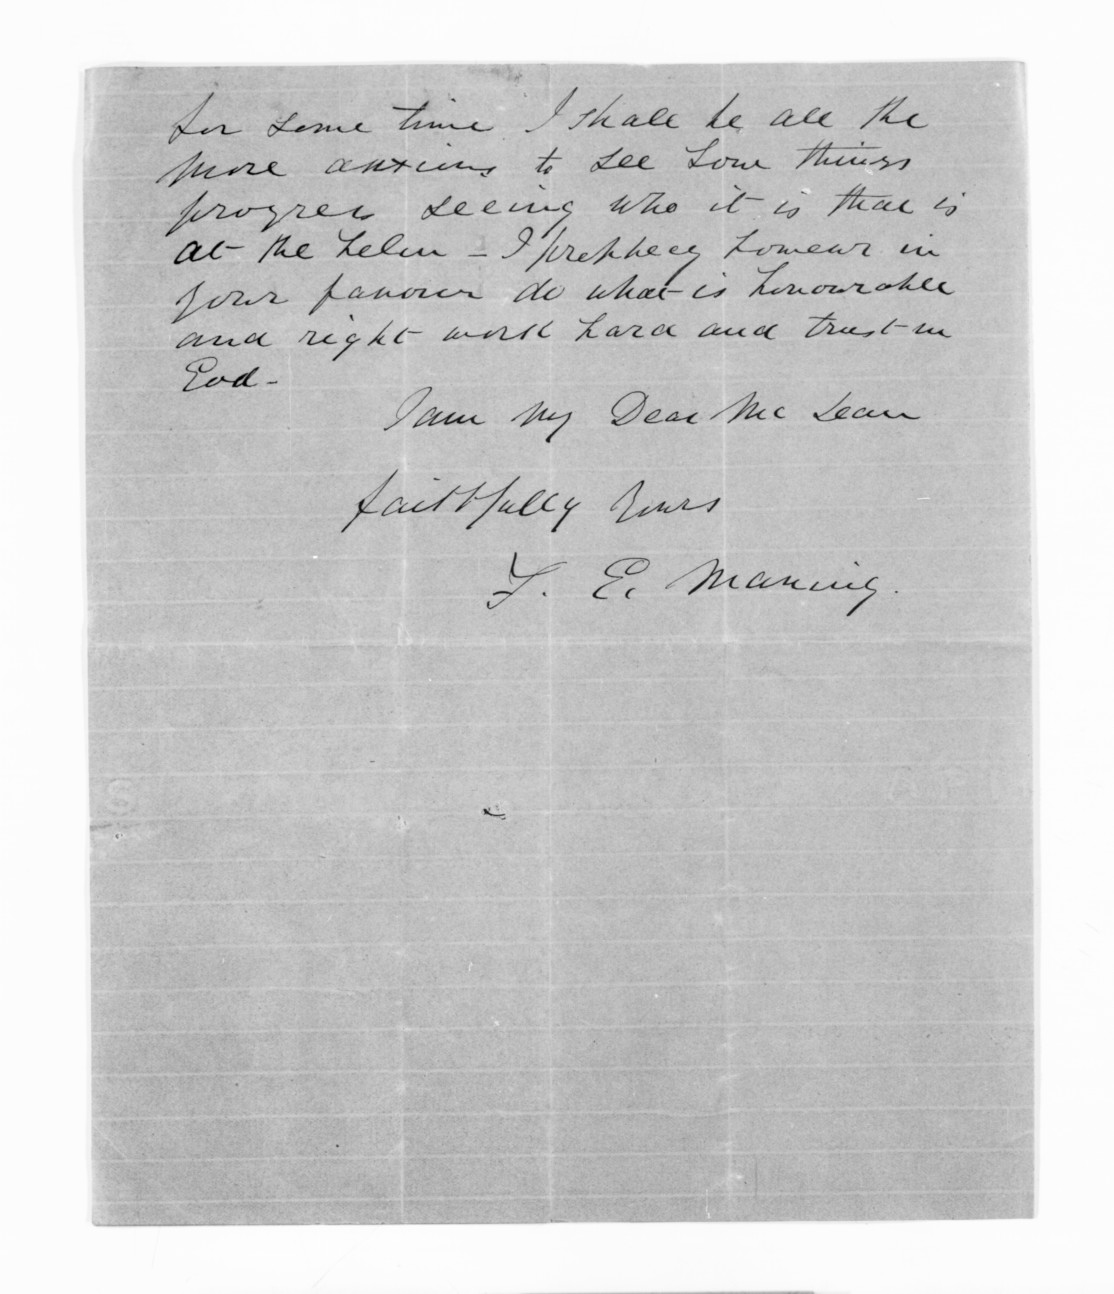 for some time I shall be all the
more anxious to see how things
progress seeing who it is that is
at the helm – I prophecy however in
your favour do what is honourable
and right work hard and trust in
God –
I am My Dear Mc Lean
faithfully Yours
F. E. Maning.